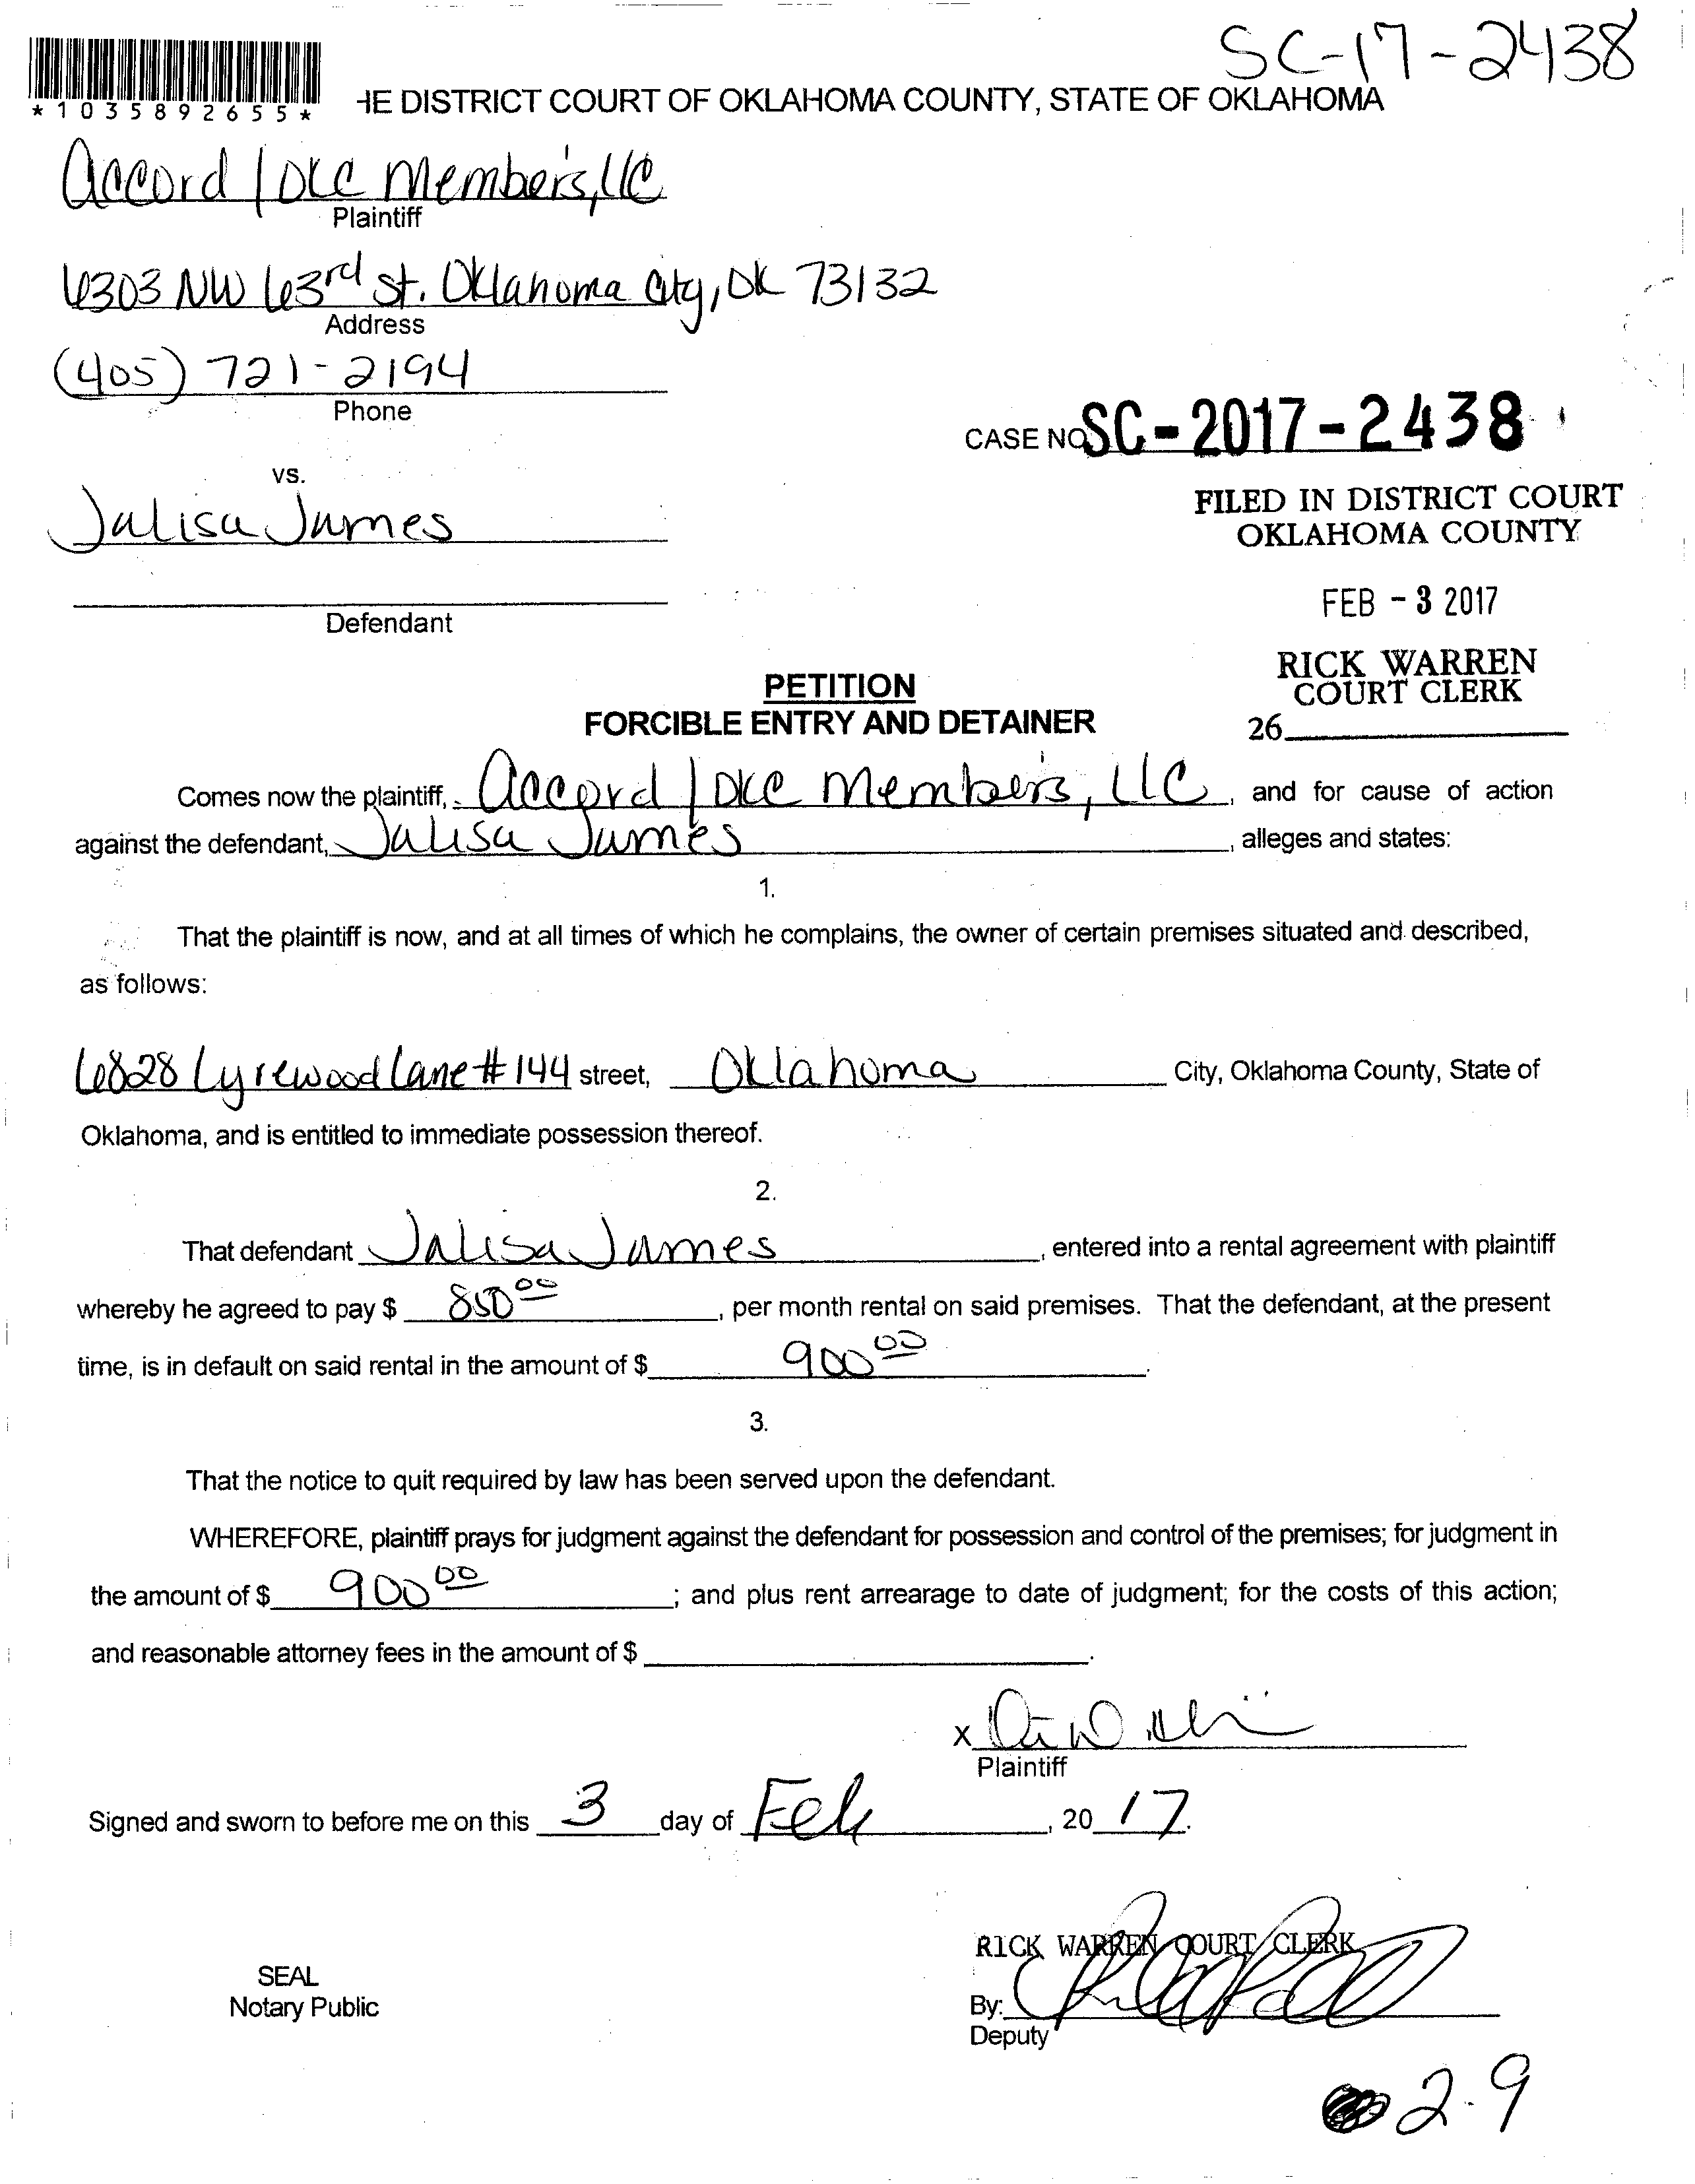 SC-17-2438
*1035892655*
HE DISTRICT COURT OF OKLAHOMA COUNTY, STATE OF OKLAHOMA
Accord / OKC Members, LLC
Plaintiff
6303 NW 63rd St. Oklahoma City, OK 73132
Address
(405) 721-2194
Phone
CASE NO. SC-2017-2438
vs.
Jalisa James
FILED IN DISTRICT COURT
OKLAHOMA COUNTY
Defendant
FEB -3 2017
RICK WARREN
COURT CLERK
26
PETITION
FORCIBLE ENTRY AND DETAINER
Comes now the plaintiff, Accord / OKC Members, LLC, and for cause of action
against the defendant, Jalisa James, alleges and states:
1.
That the plaintiff is now, and at all times of which he complains, the owner of certain premises situated and described,
as follows:
6828 Lyrewood Lane # 144 street, Oklahoma City, Oklahoma County, State of
Oklahoma, and is entitled to immediate possession thereof.
2.
That defendant Jalisa James, entered into a rental agreement with plaintiff
whereby he agreed to pay $ 850 00, per month rental on said premises. That the defendant, at the present
time, is in default on said rental in the amount of $ 900 00.
3.
That the notice to quit required by law has been served upon the defendant.
WHEREFORE, plaintiff prays for judgment against the defendant for possession and control of the premises; for judgment in
the amount of $ 900 00; and plus rent arrearage to date of judgment; for the costs of this action;
and reasonable attorney fees in the amount of $ .
X
Plaintiff
Signed and sworn to before me on this 3 day of Feb, 20 17.
RICK WARREN COURT CLERK
SEAL
Notary Public
By:
Deputy
2-9